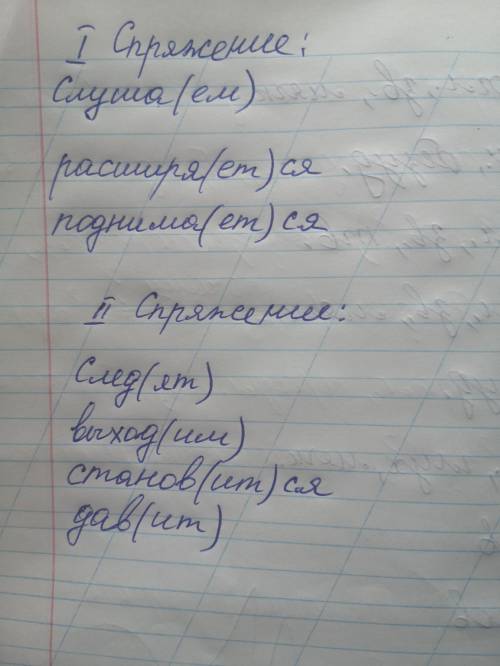 I Спряжение:
Слуша(ем)
расширя(ет)ся
поднима(ет)ся
II Спряжение:
след(ят)
выход(им)
станов(ит)ся
дав(ит)